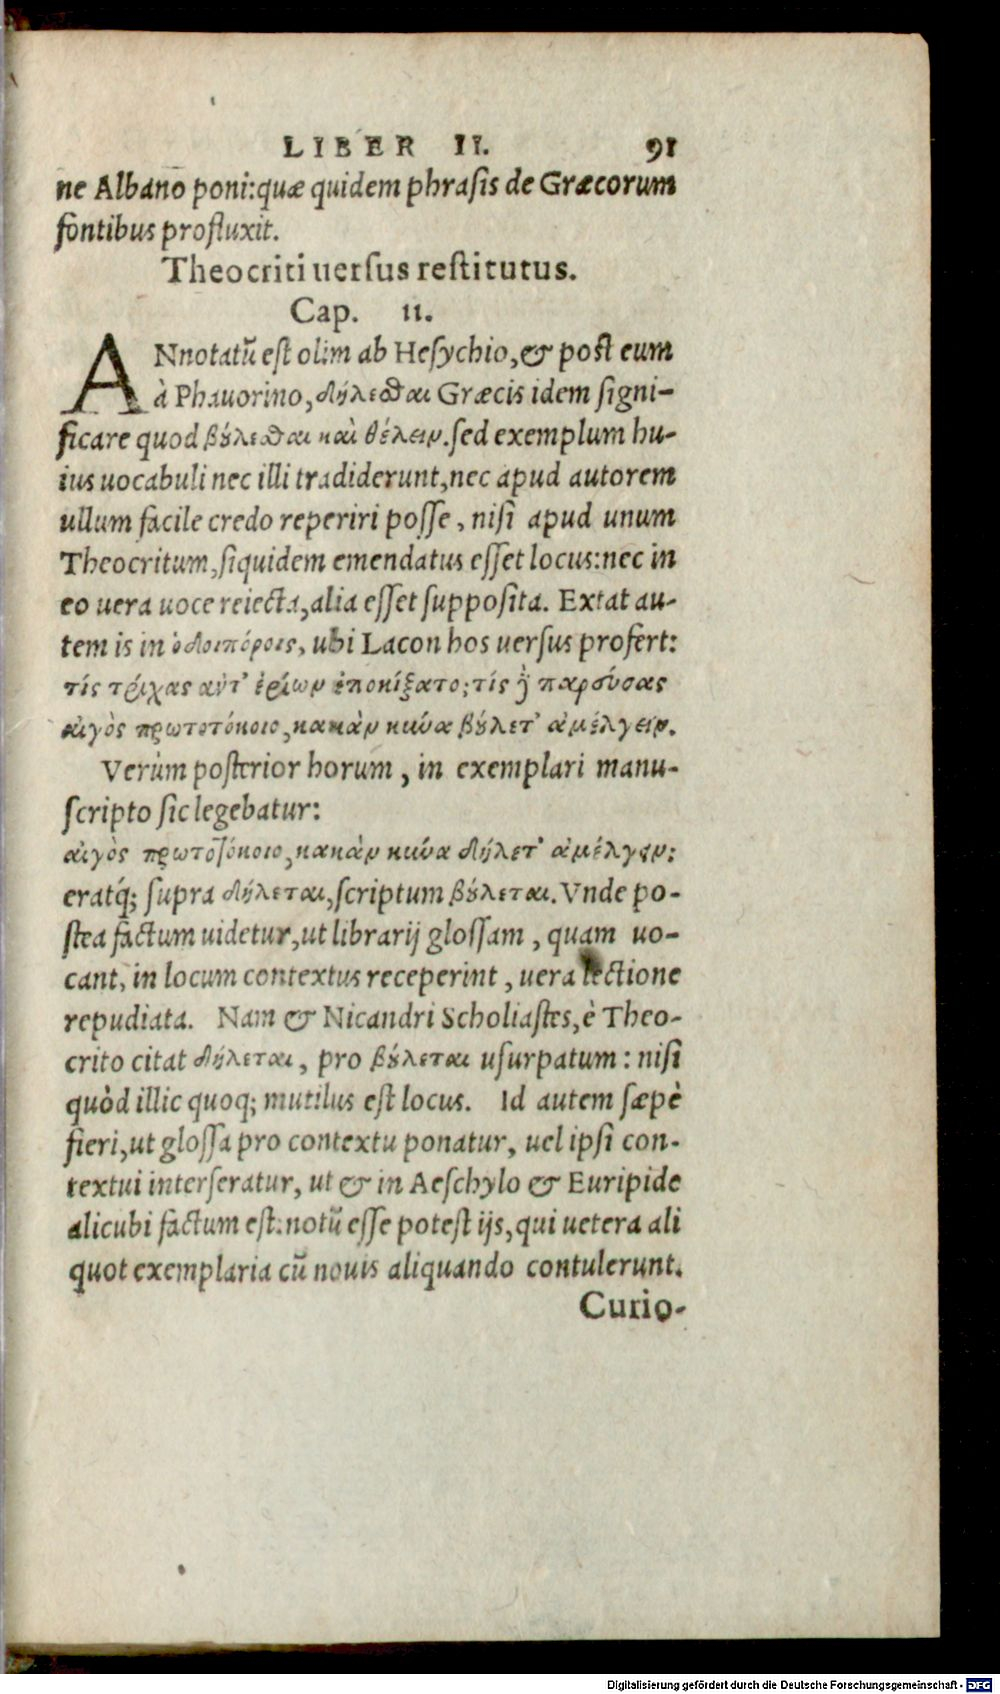 LIBER II. 91
ne Albano poni:quæ quidem phrasis de Græcorum
fontibus profluxit.
Theocriti uersus restitutus.
Cap. 11.
ANnotatū est olim ab Hesychio,& post eum
à Phauorino, δήλεσθαι Græcis idem signi-
ficare quod βούλεσθαι καὶ θέλειν.sed exemplum hu-
ius uocabuli nec illi tradiderunt,nec apud autorem
ullum facile credo reperiri posse, nisi apud unum
Theocritum,siquidem emendatus esset locus:nec in
eo uera uoce reiecta,alia esset supposita. Extat au-
tem is in ὁδοιπόροις, ubi Lacon hos uersus profert:
τίς τρίχας αντ' ἐρίων ἐποκίξατο; τίς δὲ παρούσας
αἰγὸς πρωτοτόκοιο, κακὰν κύνα βούλετ' ἀμέλγειν.
Verùm posterior horum, in exemplari manu-
scripto sic legebatur:
αἰγὸς πρωτοτόκοιο, κακὰν κύνα δήλετ' ἀμέλγεν:
eratq́; supra δήλεται,scriptum βούλεται. Vnde po-
stea factum uidetur,ut librarij glossam, quam uo-
cant, in locum contextus receperint, uera lectione
repudiata. Nam & Nicandri Scholiastes, è Theo-
crito citat δήλεται, pro βούλεται usurpatum: nisi
quòd illic quoq; mutilus est locus. Id autem sæpè
fieri,ut glossa pro contextu ponatur, uel ipsi con-
textui interseratur, ut & in Aeschylo & Euripide
alicubi factum est:notū esse potest ijs,qui uetera ali
quot exemplaria cū nouis aliquando contulerunt.
Curio-
Digitalisierung gefördert durch die Deutsche Forschungsgemeinschaft - DFG